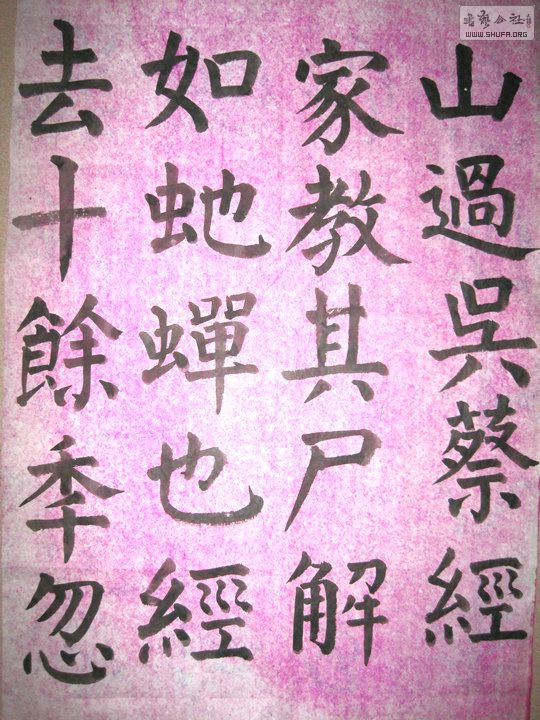 山過吳蔡經
家教其尸解
如虵蟬也經
去十餘秊忽
书艺公社
WWW.SHUFA.ORG